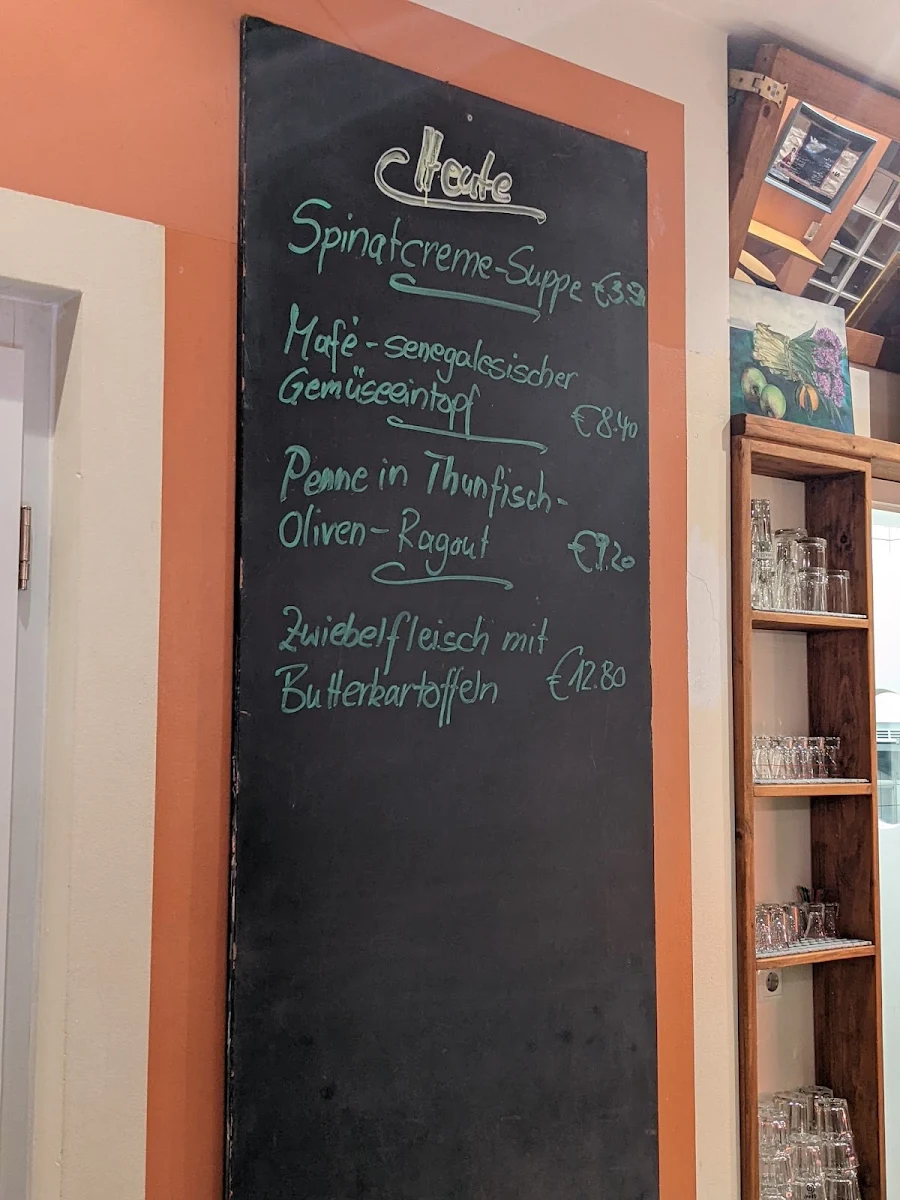 Heute
Spinatcreme-Suppe
Mafé - senegalesischer
Gemüseeintopf €8.40
Penne in Thunfisch-
Oliven-Ragout €9.20
Zwiebelfleisch mit
Butterkartoffeln €12.80